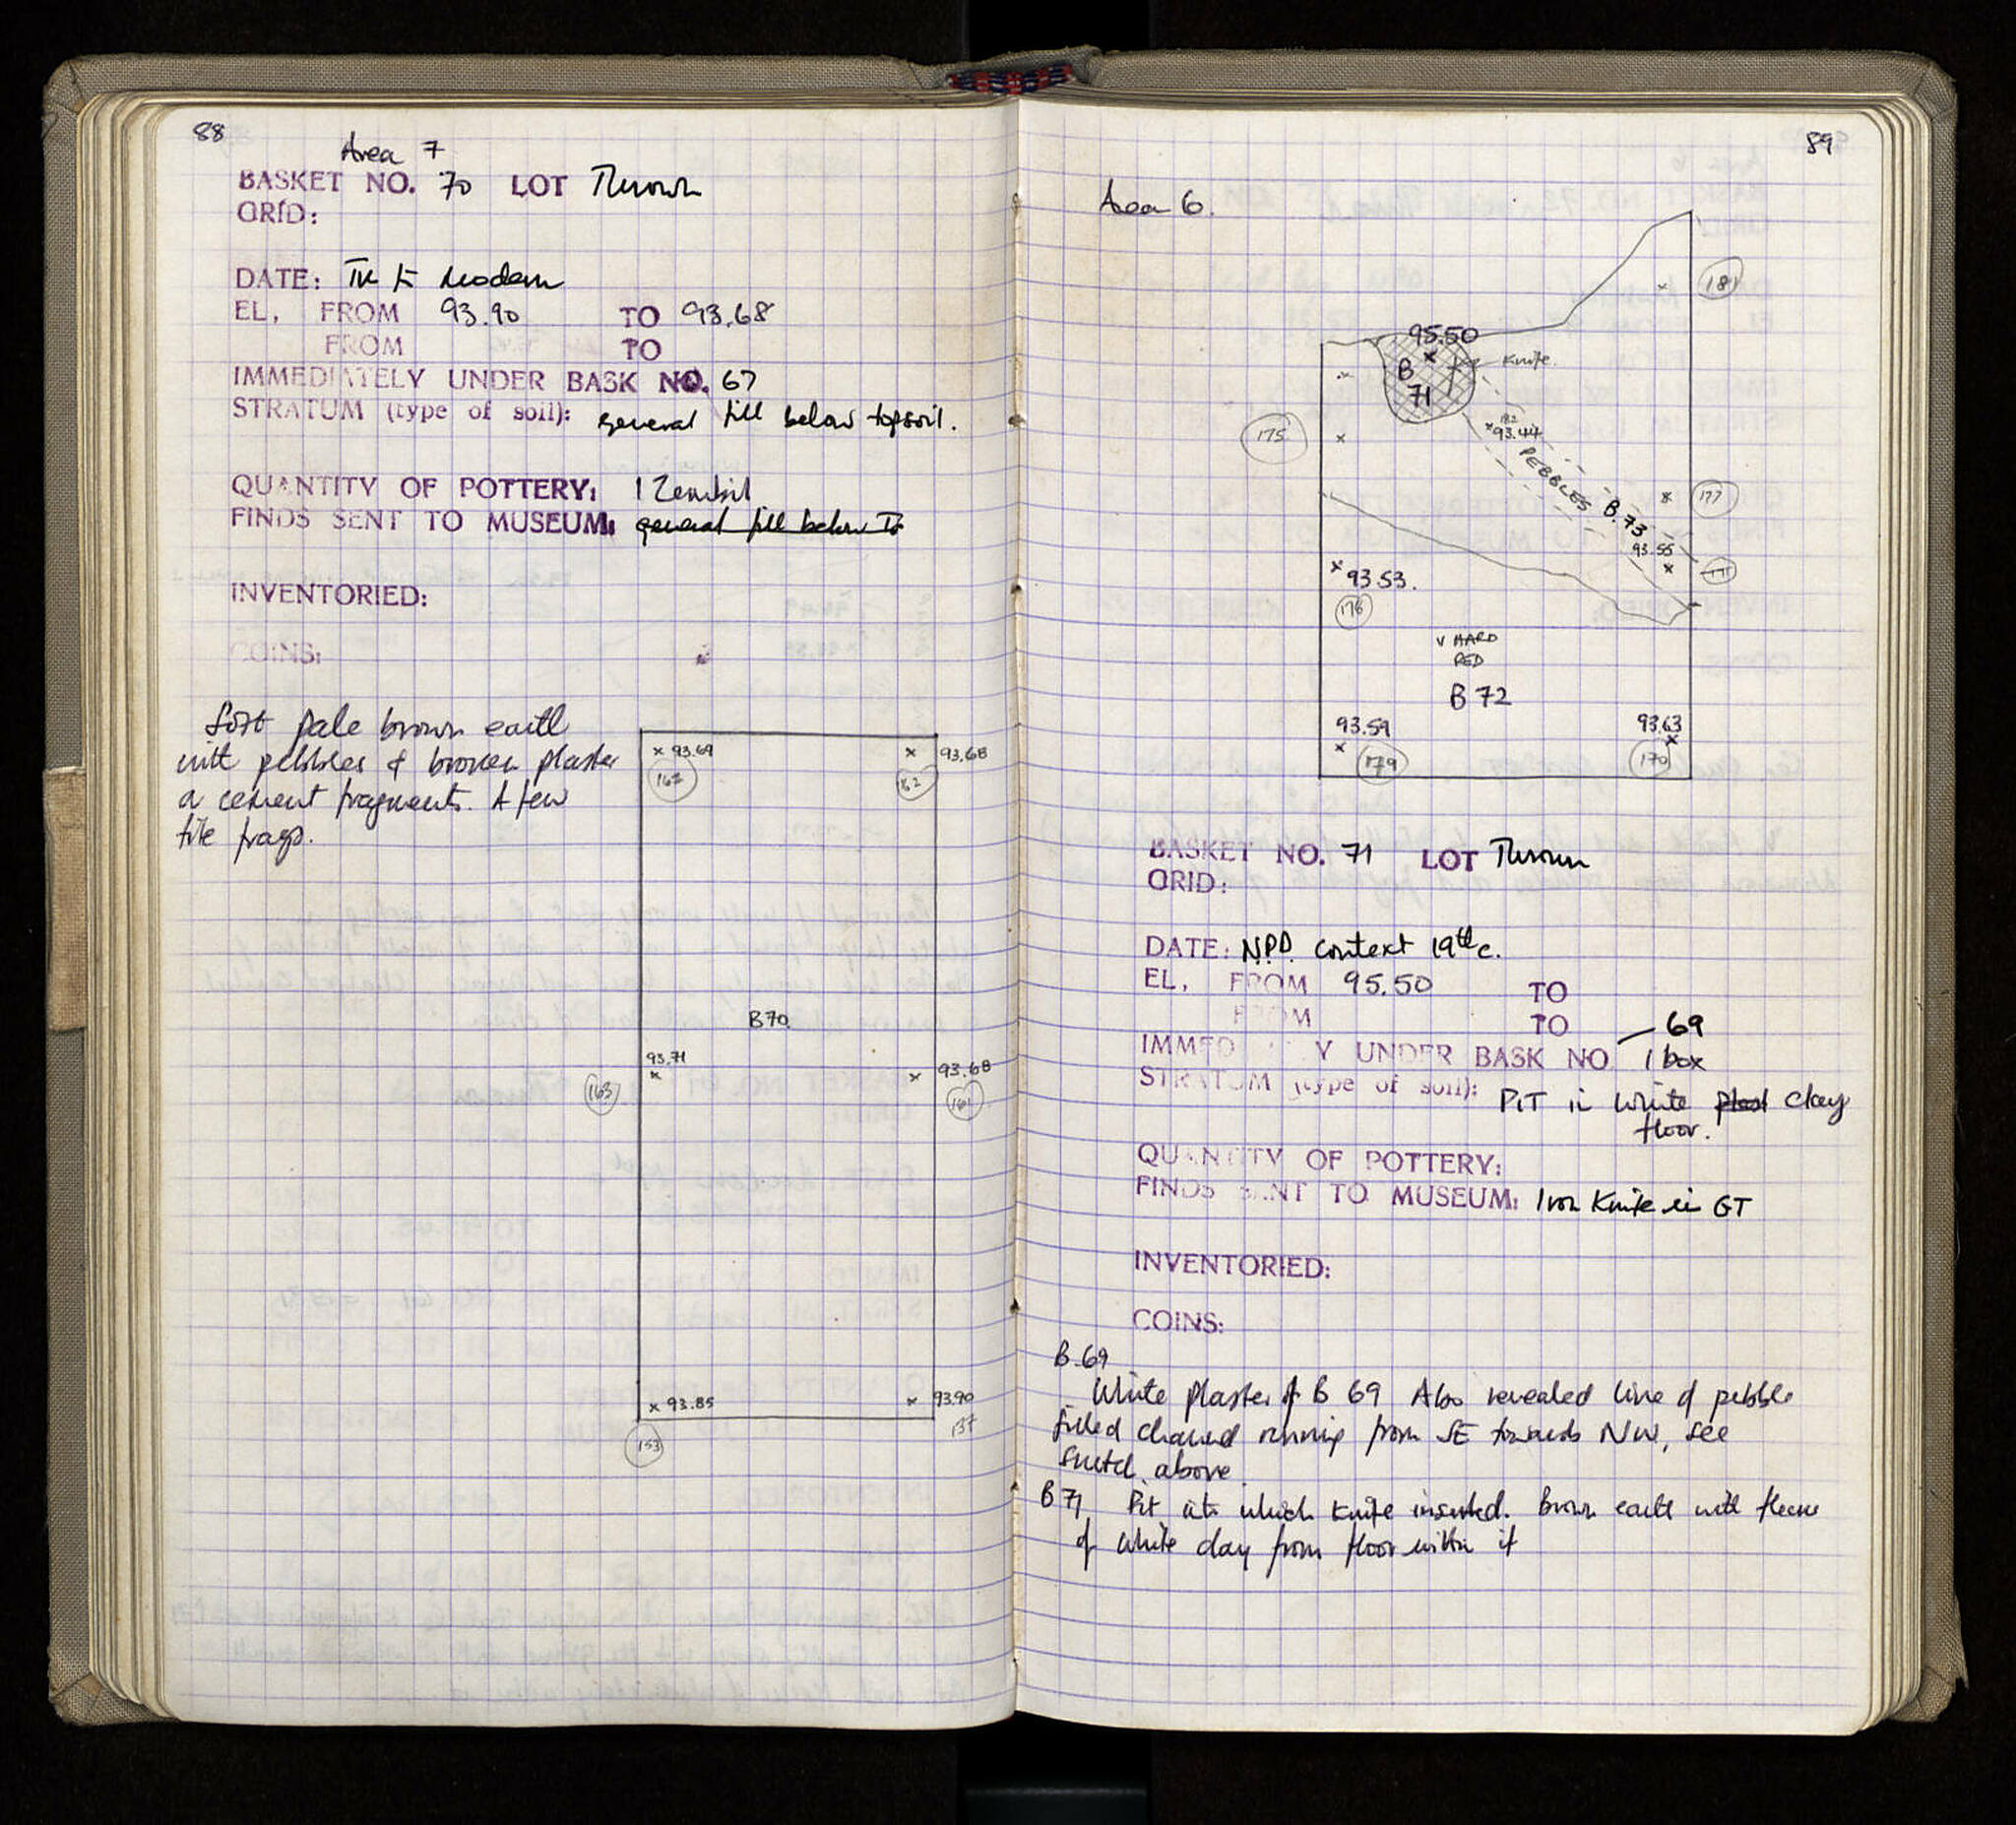 88
Area 7
BASKET NO. 70 LOT Thrown
GRID:
DATE: Modern
EL, FROM 93.90 TO 93.68
FROM TO
IMMEDIATELY UNDER BASK NO. 67
STRATUM (type of soil): general fill below topsoil.
QUANTITY OF POTTERY: 1 Zembil
FINDS SENT TO MUSEUM: general fill below
INVENTORIED:
COINS:
Soft pale brown earth
with pebbles & broken plaster
a cement fragments. A few
tile frags.
x 93.69 x 93.68
162
B70
93.71
x x 93.68
163 161
x 93.85 x 93.90
153
89
Area 6.
181
95.50
x
B Knife.
71
175
182
x 93.44
PEBBLES B.73
177
93.55
x
x 93 53.
176
V HARD
RED
B 72
93.59 93.63
x x
179 170
BASKET NO. 71 LOT Thrown
GRID:
DATE: N.P.D. context 19th c.
EL, FROM 95.50 TO
FROM TO
69
IMMED Y UNDER BASK NO 1 box
STRATUM (type of soil): PIT in white clay
floor.
QUANTITY OF POTTERY:
FINDS SENT TO MUSEUM: Iron Knife in GT
INVENTORIED:
COINS:
B.69
White plaster of B 69 Also revealed line of pebble
filled channel running from SE towards NW, see
sketch above
B 71 Pit into which knife inserted. Brown earth with flecks
of white clay from floor within it